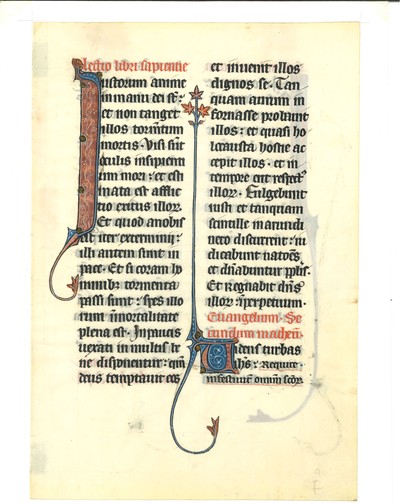 Lectio libri sapientie
Iustorum anime
in manu dei st̄:
et non tanget
illos tormītum
mortis. Visi sūt
oculis insipienti
um mori: et esti
mata est afflic
tio exitus illoꝝ.
Et quod a nobis
est iter exterminij:
illi autem sunt in
pace. Et si coram ho
minibꝫ tormenta
passi sunt: spes illo
rum īmortalitate
plena est. In paucis
uexati in multis be
ne disponentur: qm̄
deus temptauit eos
et inuenit illos
dignos se. Tan
quam aurum in
fornasse probauit
illos: et quasi ho
locausta hostie ac
cepit illos. et in
tempore erit respectꝰ
illoꝝ. Fulgebunt
iusti et tanquam
scintille in arundi
neto discurrent: iu
dicabunt natōēs
et dn̄abuntur pplis.
Et regnabit dn̄s
illoꝝ īperpetuum.
Euangelium. Se
cundum matheū.
Videns turbas
ih̄s: Require.
in festiuit. omnium scoꝝ.